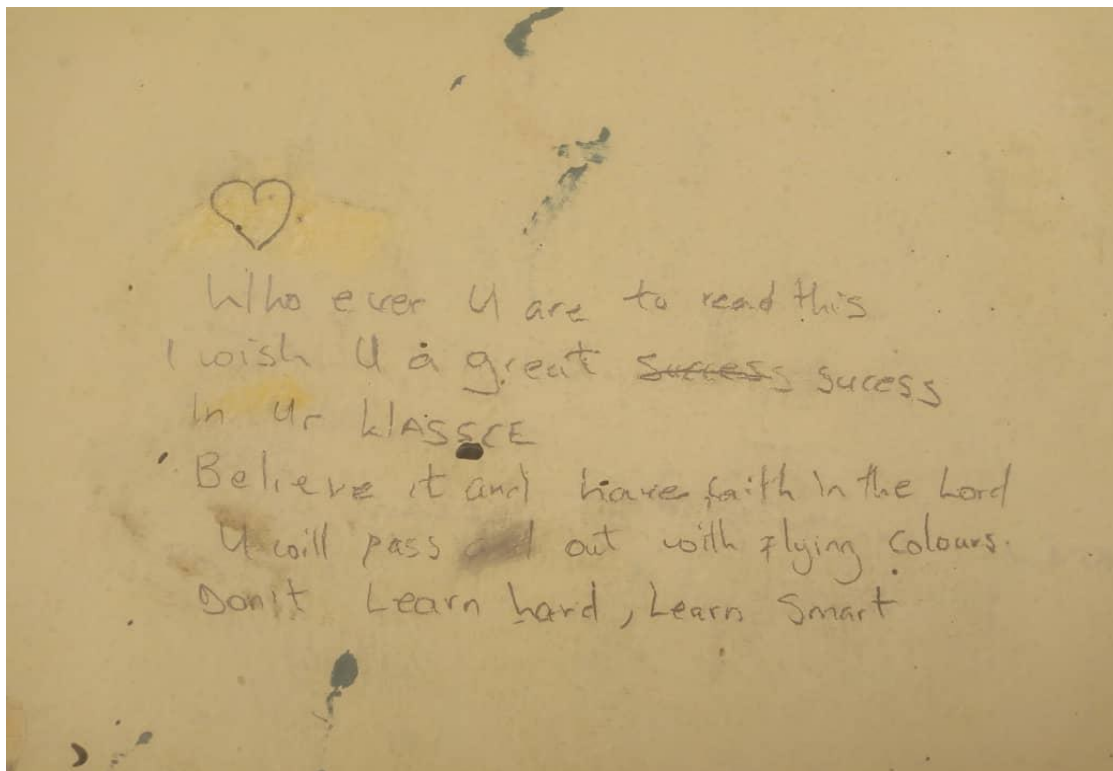 Who ever U are to read this
I wish U a great success sucess
In Ur WASSCE
Believe it and have faith in the Lord
U will pass out with flying colours.
Don't Learn hard, Learn Smart